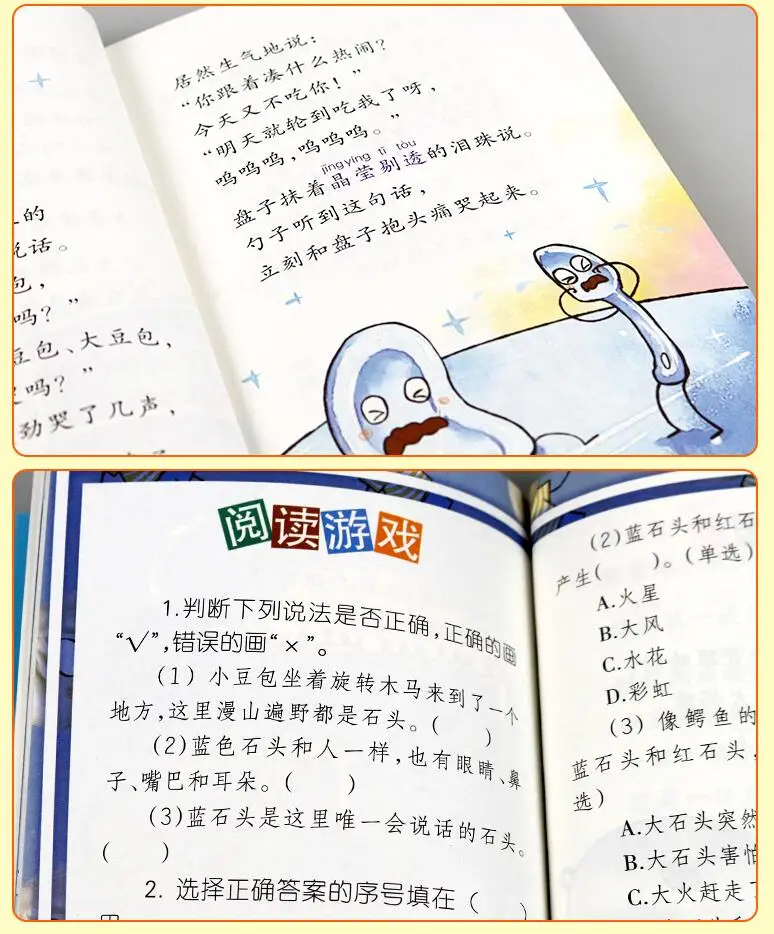 的
说话。
包，
吗？”
豆包、大豆包，
吗？”
劲哭了几声，
居然生气地说：
“你跟着凑什么热闹？
今天又不吃你！”
“明天就轮到吃我了呀，
呜呜呜，呜呜呜。”
jīng yíng tī tòu
盘子抹着晶莹剔透的泪珠说。
勺子听到这句话，
立刻和盘子抱头痛哭起来。
阅读游戏
1.判断下列说法是否正确，正确的画
“√”，错误的画“×”。
(1) 小豆包坐着旋转木马来到了一个
地方，这里漫山遍野都是石头。( )
(2)蓝色石头和人一样，也有眼睛、鼻
子、嘴巴和耳朵。( )
(3)蓝石头是这里唯一会说话的石头。
( )
2. 选择正确答案的序号填在( )
(2)蓝石头和红石
产生( )。(单选)
A.火星
B.大风
C.水花
D.彩虹
(3) 像鳄鱼的
蓝石头和红石头，
选)
A.大石头突然
B.大石头害怕
C.大火赶走了